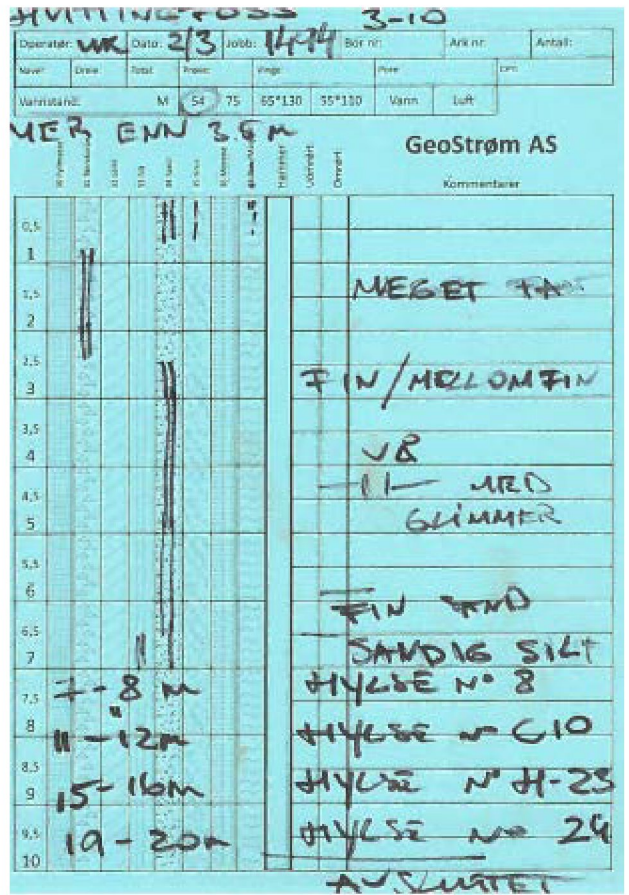 HVITTINGFOSS 3-10
Operatør: WK Dato: 2/3 Jobb: 1494 Bor nr: Ark nr: Antall:
Naver: Dreie: Total: Prøver: Vinge: Pore: CPT:
Vannstand: M 54 75 65*130 55*110 Vann Luft
MER ENN 3.5 M
GeoStrøm AS
Hammer Uomrørt Omrørt Kommentarer
0,5
1
1,5 MEGET FAST
2
2,5
3 FIN/MELLOMFIN
3,5
4 VB
4,5 -11- MED
5 GLIMMER
5,5
6 FIN SAND
6,5
7 SANDIG SILT
7-8 m HYLSE N° 8
7,5
8 11-12m HYLSE N° C10
8,5
9 15-16m HYLSE N° H-25
9,5 19-20m HYLSE N° 24
10
AVSLUTTET